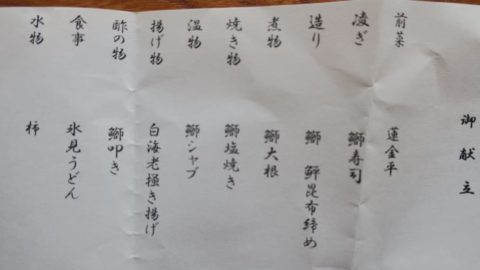 御献立
前菜 蓮金平
凌ぎ 鰤寿司
造り 鰤 鮃昆布締め
煮物 鰤大根
焼き物 鰤塩焼き
温物 鰤シャブ
揚げ物 白海老掻き揚げ
酢の物 鰤叩き
食事 氷見うどん
水物 柿